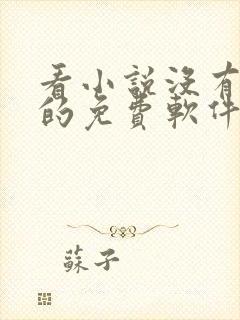 看小説没有
的免費軟件
蘇子